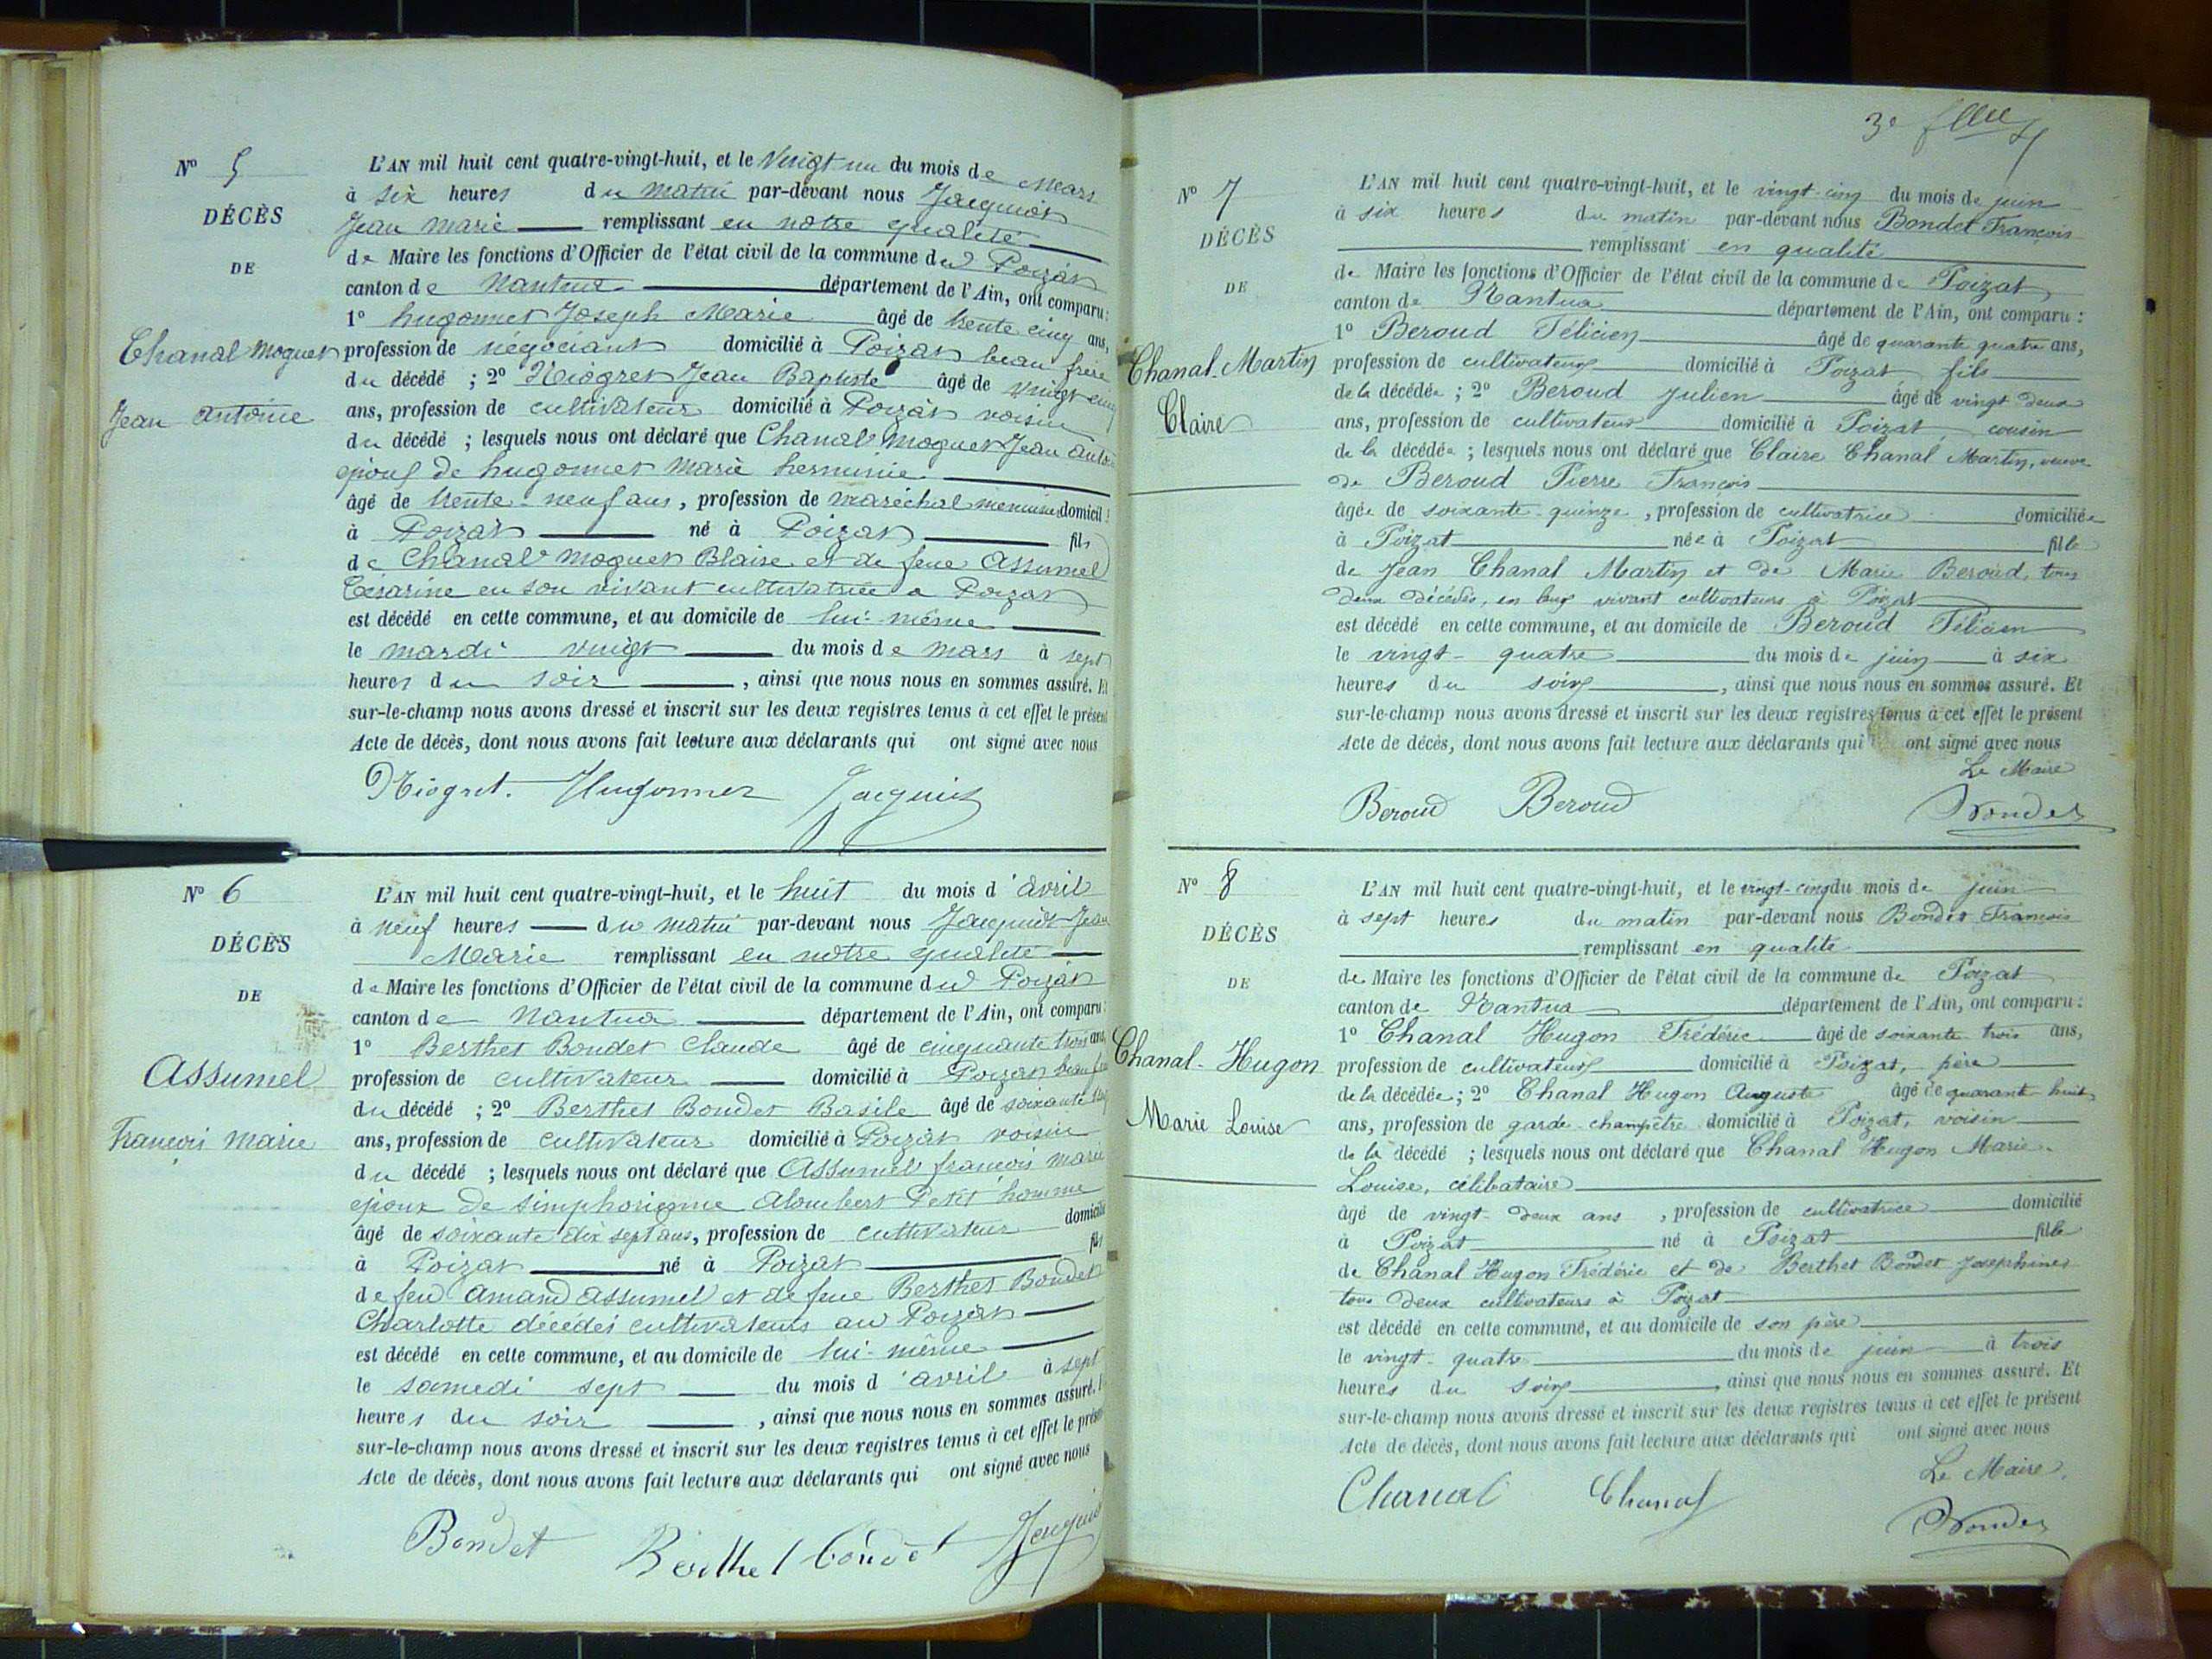 N° 5
DÉCÈS
DE
Chanal Moguet
Jean Antoine
L'AN mil huit cent quatre-vingt-huit, et le Vingt un du mois de Mars
à six heures du matin par-devant nous Jacquiot
Jean Marie remplissant en notre qualité
de Maire les fonctions d'Officier de l'état civil de la commune du Poizat
canton de Nantua département de l'Ain, ont comparu :
1° hugonnet Joseph Marie âgé de trente cinq ans,
profession de négociant domicilié à Poizat beau frère
du décédé ; 2° Niogret Jean Baptiste âgé de vingt cinq
ans, profession de cultivateur domicilié à Poizat voisin
du décédé ; lesquels nous ont déclaré que Chanal Moguet Jean Antoine
époux de hugonnet Marie herminie
âgé de trente-neuf ans, profession de maréchal menuisier domicilié
à Poizat né à Poizat fils
de Chanal Moguet Blaise et de feue Assumel
Césarine en son vivant cultivatrice a Poizat
est décédé en cette commune, et au domicile de lui-même
le mardi vingt du mois de mars à sept
heures du soir , ainsi que nous nous en sommes assuré. Et
sur-le-champ nous avons dressé et inscrit sur les deux registres tenus à cet effet le présent
Acte de décès, dont nous avons fait lecture aux déclarants qui ont signé avec nous
Niogret. Hugonnet Jacquiot
N° 6
DÉCÈS
DE
Assumel
François Marie
L'AN mil huit cent quatre-vingt-huit, et le huit du mois d'avril
à neuf heures du matin par-devant nous Jacquiot Jean
Marie remplissant en notre qualité
de Maire les fonctions d'Officier de l'état civil de la commune du Poizat
canton de Nantua département de l'Ain, ont comparu :
1° Berthet Bondet Claude âgé de cinquante trois ans,
profession de cultivateur domicilié à Poizat beau frère
du décédé ; 2° Berthet Bondet Basile âgé de soixante
ans, profession de cultivateur domicilié à Poizat voisin
du décédé ; lesquels nous ont déclaré que Assumel françois marie
époux de Simphorienne Alombert Petit homme
âgé de soixante dix sept ans, profession de cultivateur domicilié
à Poizat né à Poizat fils
de feu Amand Assumel et de feue Berthet Bondet
Charlotte décédés cultivateurs au Poizat
est décédé en cette commune, et au domicile de lui-même
le samedi sept du mois d'avril à sept
heures du soir , ainsi que nous nous en sommes assuré. Et
sur-le-champ nous avons dressé et inscrit sur les deux registres tenus à cet effet le présent
Acte de décès, dont nous avons fait lecture aux déclarants qui ont signé avec nous
Bondet Berthet Bondet Jacquiot
3e flle
N° 7
DÉCÈS
DE
Chanal-Martin
Claire
L'AN mil huit cent quatre-vingt-huit, et le vingt-cinq du mois de juin
à six heures du matin par-devant nous Bondet François
remplissant en qualité
de Maire les fonctions d'Officier de l'état civil de la commune de Poizat
canton de Nantua département de l'Ain, ont comparu :
1° Beroud Félicien âgé de quarante quatre ans,
profession de cultivateur domicilié à Poizat fils
de la décédée ; 2° Beroud Julien âgé de vingt deux
ans, profession de cultivateur domicilié à Poizat, cousin
de la décédée ; lesquels nous ont déclaré que Claire Chanal Martin, veuve
de Beroud Pierre François
âgée de soixante-quinze , profession de cultivatrice domiciliée
à Poizat née à Poizat fille
de Jean Chanal Martin et de Marie Beroud, tous
deux décédés, en leur vivant cultivateurs à Poizat
est décédé en cette commune, et au domicile de Beroud Félicien
le vingt-quatre du mois de juin à six
heures du soir , ainsi que nous nous en sommes assuré. Et
sur-le-champ nous avons dressé et inscrit sur les deux registres tenus à cet effet le présent
Acte de décès, dont nous avons fait lecture aux déclarants qui ont signé avec nous
Le Maire
Beroud Beroud Bondet
N° 8
DÉCÈS
DE
Chanal-Hugon
Marie Louise
L'AN mil huit cent quatre-vingt-huit, et le vingt-cinq du mois de juin
à sept heures du matin par-devant nous Bondet François
remplissant en qualité
de Maire les fonctions d'Officier de l'état civil de la commune de Poizat
canton de Nantua département de l'Ain, ont comparu :
1° Chanal Hugon Frédéric âgé de soixante-trois ans,
profession de cultivateur domicilié à Poizat, père
de la décédée ; 2° Chanal Hugon Auguste âgé de quarante-huit
ans, profession de garde-champêtre domicilié à Poizat, voisin
de la décédé ; lesquels nous ont déclaré que Chanal Hugon Marie-
Louise, célibataire
âgé de vingt-deux ans , profession de cultivatrice domicilié
à Poizat né à Poizat fille
de Chanal Hugon Frédéric et de Berthet Bondet Josephine
tous deux cultivateurs à Poizat
est décédé en cette commune, et au domicile de son père
le vingt-quatre du mois de juin à trois
heures du soir , ainsi que nous nous en sommes assuré. Et
sur-le-champ nous avons dressé et inscrit sur les deux registres tenus à cet effet le présent
Acte de décès, dont nous avons fait lecture aux déclarants qui ont signé avec nous
Le Maire,
Chanal Chanal Bondet